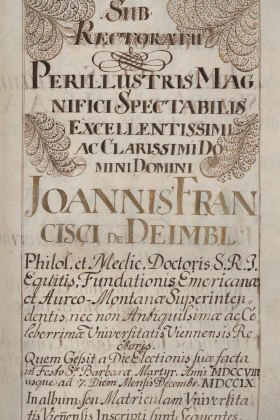 SUB
RECTORATU
PERILLUSTRIS MAG
NIFICI SPECTABILIS
EXCELLENTISSIMI
AC CLARISSIMI DO
MINI DOMINI
JOANNIS FRAN
CISCI DE DEIMBL
Philos. et Medic. Doctoris S.R.I.
Equitis, Fundationis Emericanæ
et Aureo-Montanæ Superinten-
dentis, nec non Antiquissimæ ac Ce
leberrimæ Universitatis Viennensis Re
ctoris.
Quem Gessit a Die Electionis suæ facta
in Festo S. Barbaræ Martyr. Anni MDCCVIII
usque ad 7. Diem Mensis Decembr. MDCCIX.
In album seu Matriculam Universita
tis Vieñensis Inscripti sunt Sequentes